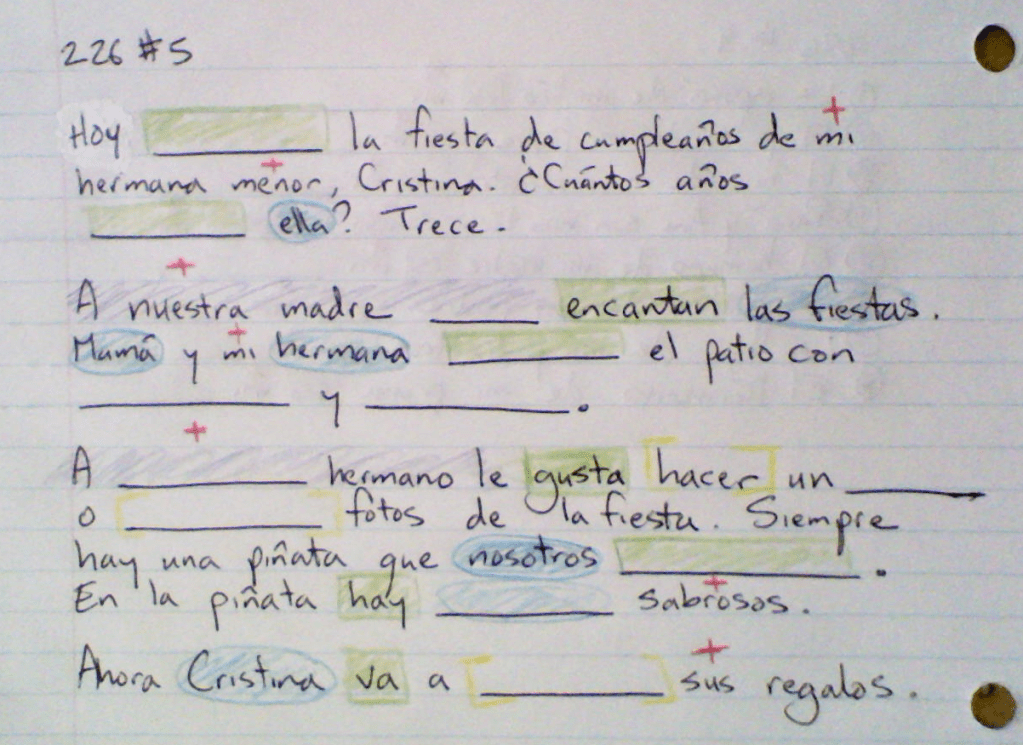 226 #5
Hoy ________ la fiesta de cumpleaños de mi
hermana menor, Cristina. ¿Cuántos años
________ ella? Trece.
A nuestra madre _____ encantan las fiestas.
Mamá y mi hermana ________ el patio con
__________ y __________.
A _________ hermano le gusta hacer un _______
o __________ fotos de la fiesta. Siempre
hay una piñata que nosotros ____________.
En la piñata hay ________ sabrosos.
Ahora Cristina va a _________ sus regalos.